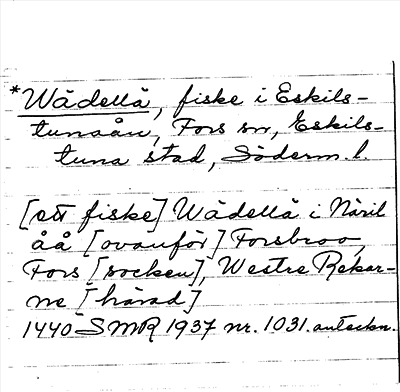 *Wådellå, fiske i Eskils-
tunaån, Fors sn, Eskils-
tuna stad, Söderm. l.
[ett fiske] Wådellå i Näril
åå [ovanför] Forsbroo,
Fors [socken], Westre Rekar-
ne [härad]
1440 SMR 1937 nr. 1031. anteckn.